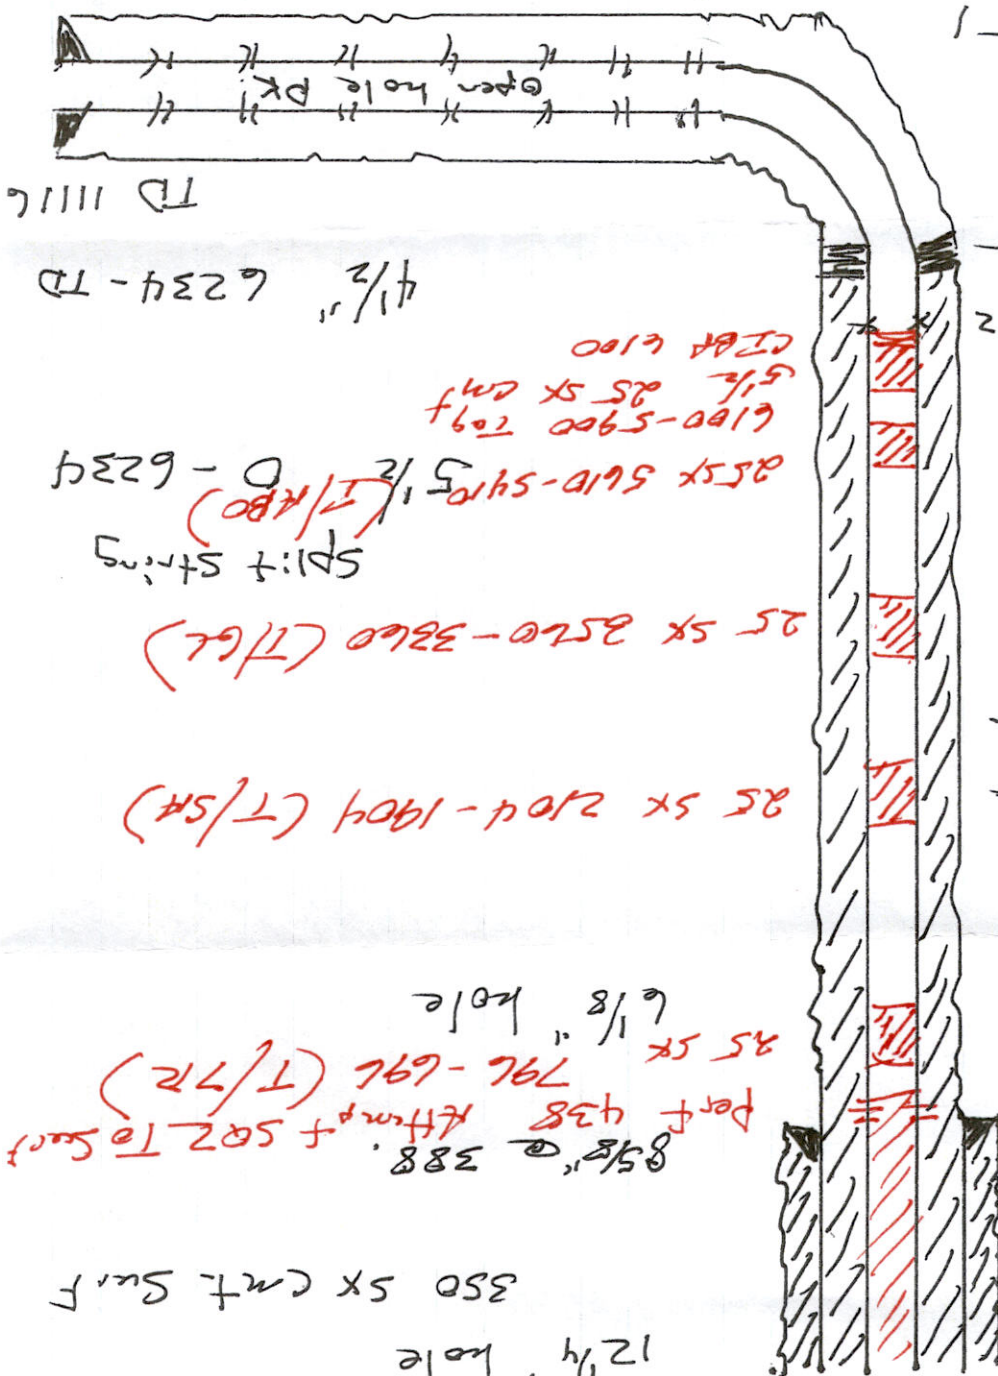 12 1/4" hole
350 sx cmt. Surf
8 5/8" @ 388.
Perf 438 Attempt SQZ To Surf
25 sx 796 - 696 (T/7R)
6 1/8" hole
25 sx 2104 - 1904 (T/SA)
25 sx 3560 - 3360 (T/GL)
Split string
5 1/2 0 - 6234
25 sx 5610-5410 (T/ABO)
6100-5900 Tag
5 1/2 25 sx cmt
CIBP 6100
4 1/2" 6234 - TD
TD 11116
Open hole PK.